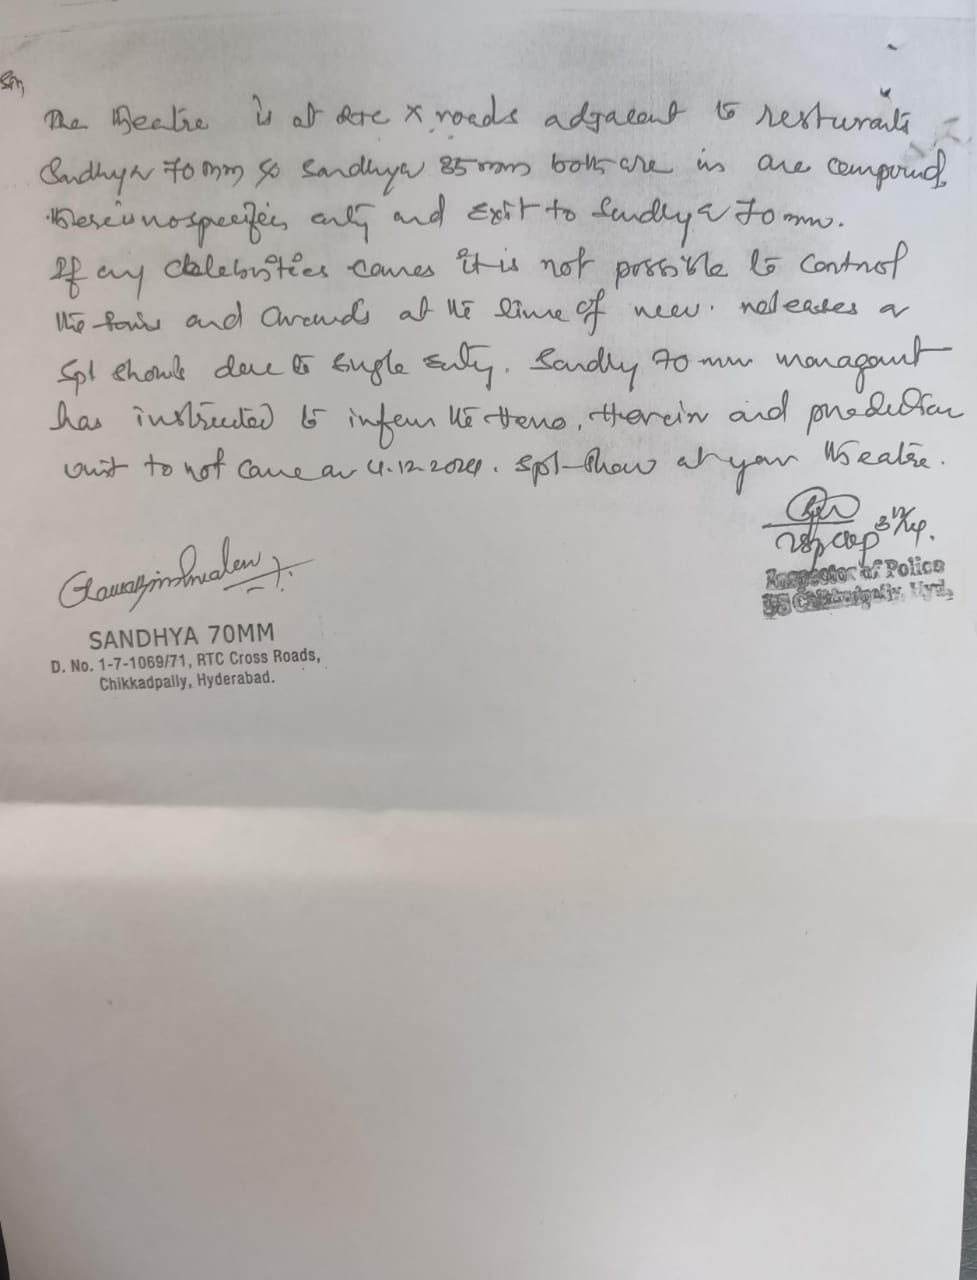 The theatre is at RTC X roads adjacent to resturants
Sandhya 70 mm & Sandhya 35 mm both are in one compound,
there is no specific entry and Exit to Sandhya 70 mm.
If any celebrities comes it is not possible to control
the fans and crowds at the time of new releases or
Spl shows due to single entry. Sandhya 70 mm managment
has instructed to inform the Hero, Heroin and production
unit to not come on 4.12.2024. Spl-Show at your theatre.
3/12/24.
Inspector of Police
PS Chikkadpally, Hyd.
SANDHYA 70MM
D. No. 1-7-1069/71, RTC Cross Roads,
Chikkadpally, Hyderabad.